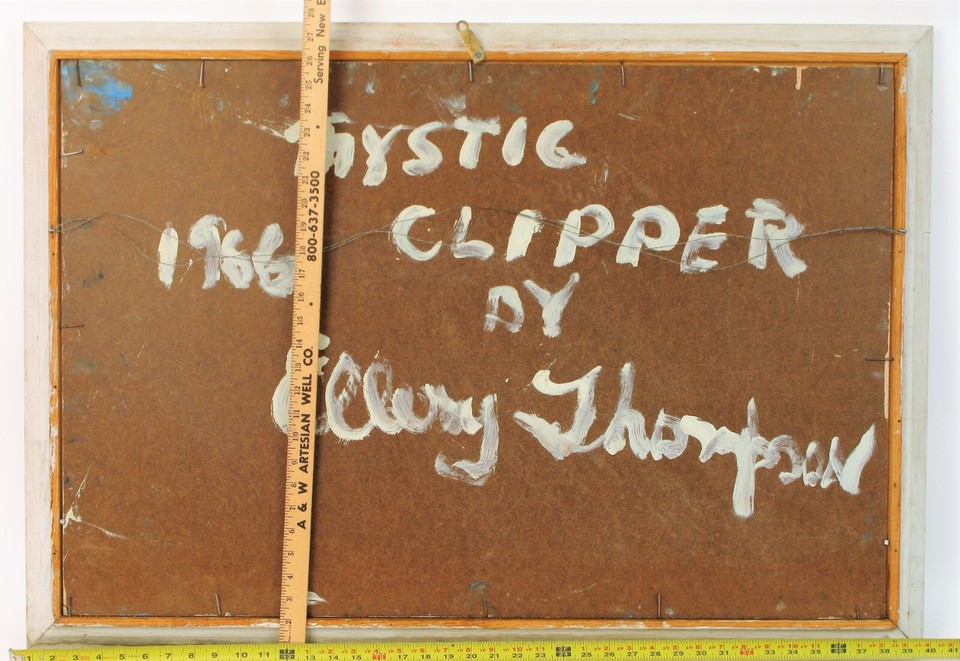 MYSTIC
1966 CLIPPER
BY
Ellery Thompson
Serving New E
800-637-3500
A & W ARTESIAN WELL CO.